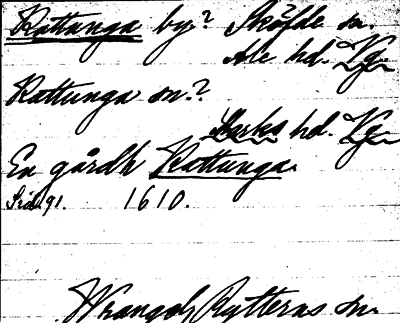 Rattunga by? Sköfde sn.
Ale hd. Vg.
Rattunga sn.?
Marks hd. Vg.
En gårdh Rattunga.
Sid. 91. 1610.
Wrangels Rytterns sn.